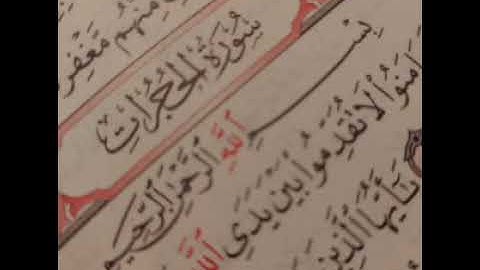 مِنْهُم مَّغْفِرَ
سُورَةُ الْحُجُرَاتِ
بِسْمِ اللَّهِ الرَّحْمَٰنِ الرَّحِيمِ
يَا أَيُّهَا الَّذِينَ
آمَنُوا لَا تُقَدِّمُوا بَيْنَ يَدَيِ اللَّهِ